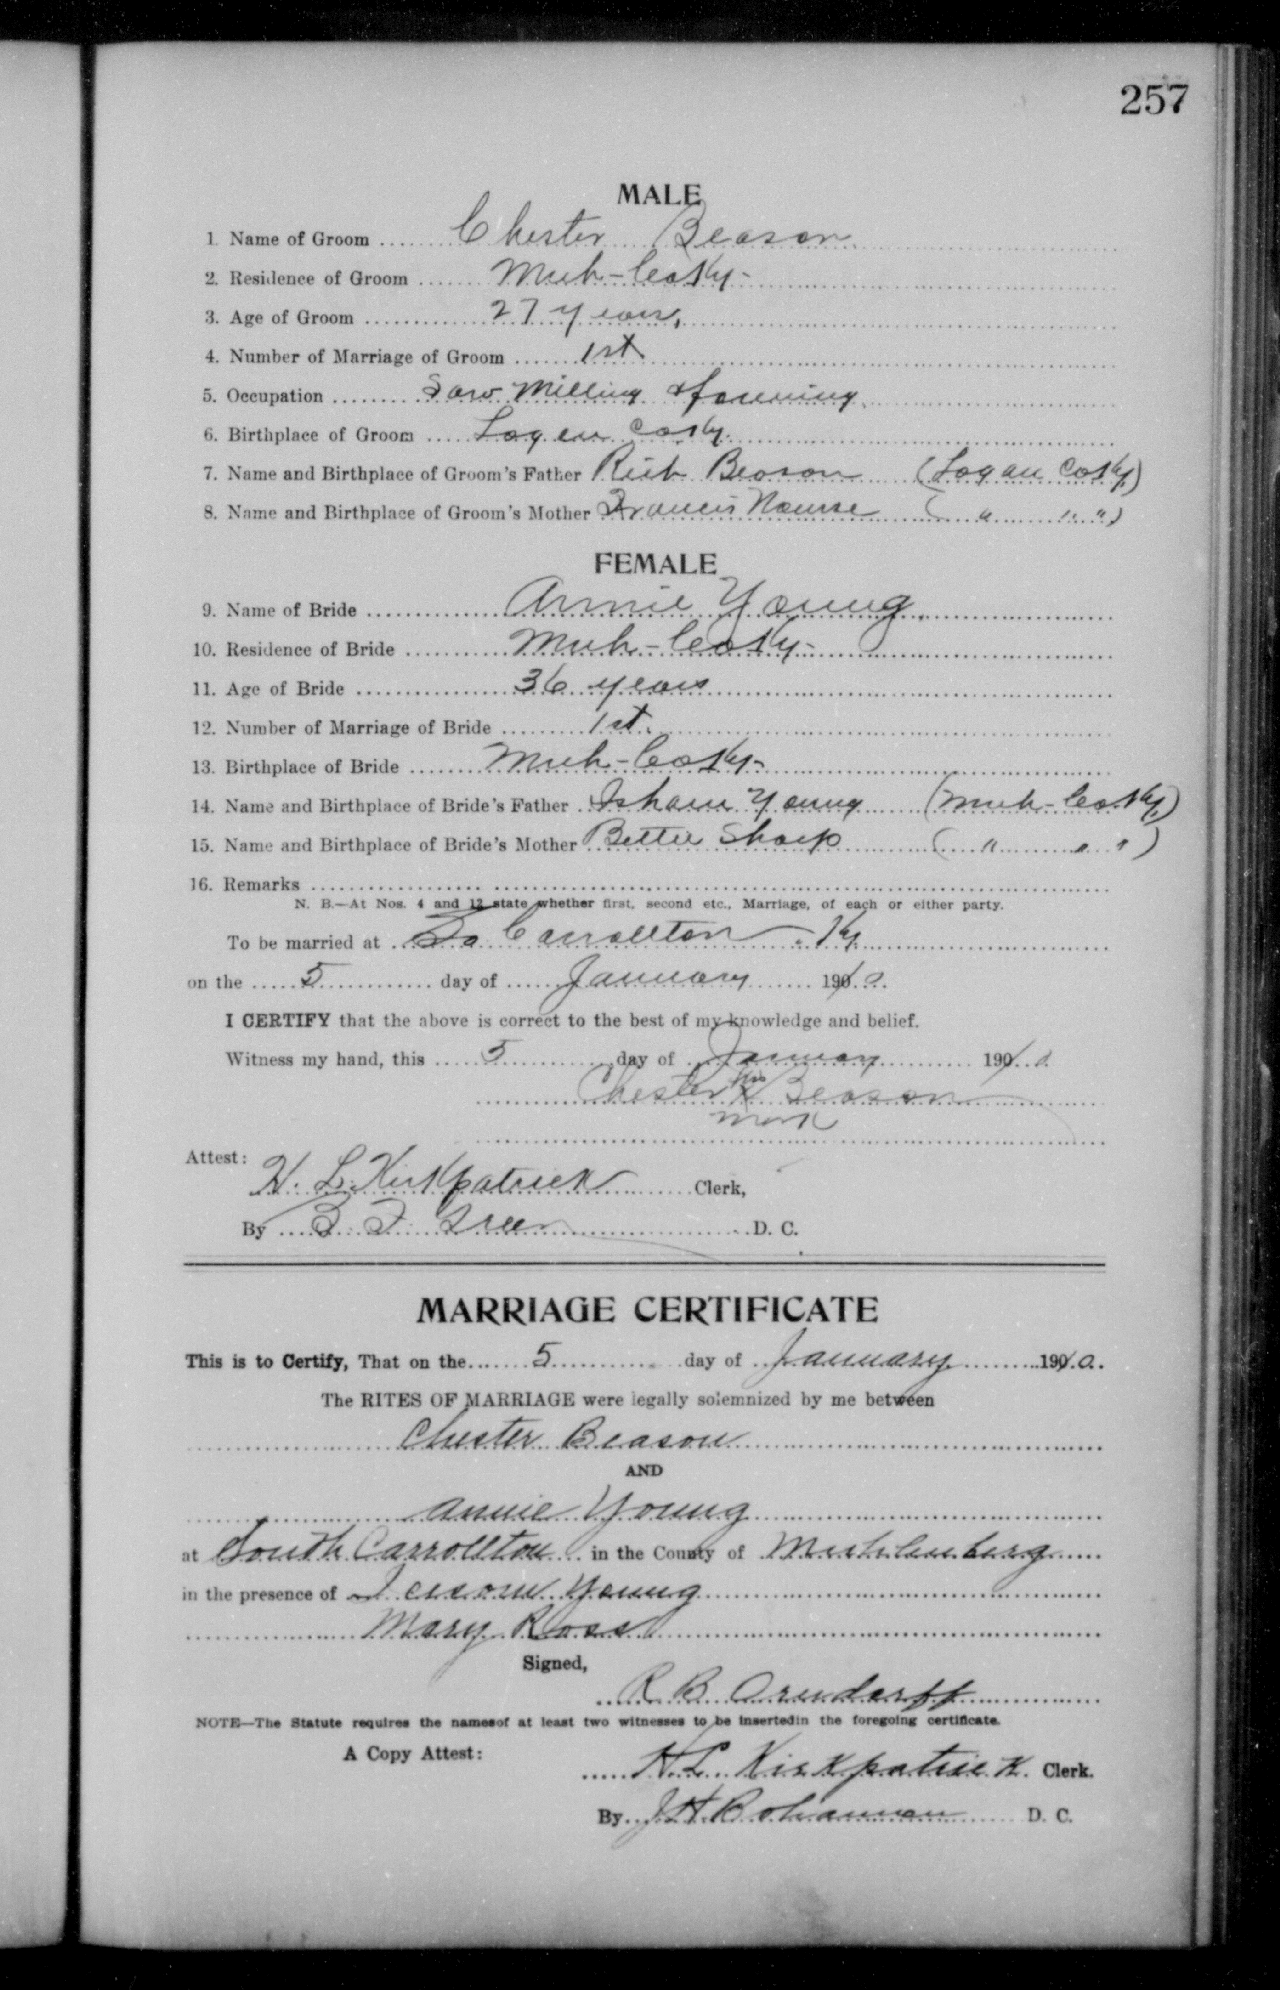 257
MALE
1. Name of Groom Chester Beason
2. Residence of Groom Muh-Co Ky-
3. Age of Groom 27 years,
4. Number of Marriage of Groom 1st
5. Occupation Saw Milling & farming
6. Birthplace of Groom Logan Co Ky.
7. Name and Birthplace of Groom's Father Rich Beason (Logan Co Ky)
8. Name and Birthplace of Groom's Mother Francis Nourse ( " " ")
FEMALE
9. Name of Bride Annie Young.
10. Residence of Bride Muh-Co Ky-
11. Age of Bride 36 years
12. Number of Marriage of Bride 1st.
13. Birthplace of Bride Muh-Co Ky-
14. Name and Birthplace of Bride's Father Isham Young (Muh-Co Ky)
15. Name and Birthplace of Bride's Mother Bettie Sharp ( " " " )
16. Remarks
N. B.—At Nos. 4 and 12 state whether first, second etc., Marriage, of each or either party.
To be married at So Carrollton - Ky.
on the 5 day of January 1910.
I CERTIFY that the above is correct to the best of my knowledge and belief.
Witness my hand, this 5 day of January 1910
his
Chester X Beason
mark
Attest:
H. L. Kirkpatrick Clerk,
By B. F. Green D. C.
MARRIAGE CERTIFICATE
This is to Certify, That on the 5 day of January 1910.
The RITES OF MARRIAGE were legally solemnized by me between
Chester Beason
AND
Annie Young
at South Carrollton in the County of Muhlenberg
in the presence of Young
Mary Ross
Signed,
R B Orndorff
NOTE—The Statute requires the namesof at least two witnesses to be insertedin the foregoing certificate.
A Copy Attest:
H L Kirkpatrick Clerk.
By J H Bohannon D. C.